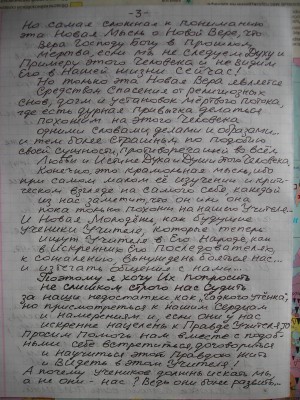 -3-
Но самая сложная к пониманию
эта Новая Мысль о Новой Вере, что
Вера Господу Богу в Прошлом,
Мертва, если мы не следуем Духу и
Примеру этого Человека и не видим
Его в Нашей жизни Сейчас!
Но только эта Новая Вера является
Средством Спасения от религиозных
снов, догм и установок Мертвого Потока,
где есть дурная Привычка делаться
Похожим на этого Человека
одними словами, делами и образами...
и тем более Страшным, по подобию
своей Сущности, Противоречащей во всём
Любви и Истине Духа и Души этого Человека.
Конечно, это крамольная мысль, ибо
при самом малом её изучении и крити-
ческом взгляде на самого себя, каждый
из нас заметит, что он или она
пока только похожи на нашего Учителя...
И Новая Молодёжь, как будущие
Ученики Учителя, которые теперь
ищут Учителя в Его Народе, как
в искренних Его Последователях,
к сожалению, вынуждены бояться нас...
и избегать общения с нами.
Поэтому я хочу Их попросить
не слишком строго нас судить
за наши недостатки как "гадкого утёнка",
но присмотреться к нашим Сердцам
и намерениям и, если они у нас
искренне нацелены к Правде Учителя, то
Просим Помочь нам вместе с подоб-
ными себе встретиться, договориться
и научиться этой Правдою жить
и Видеть в этом Учителя!
А почему Ученики должны искать мы,
а не они - нас? Ведь они более развиты...